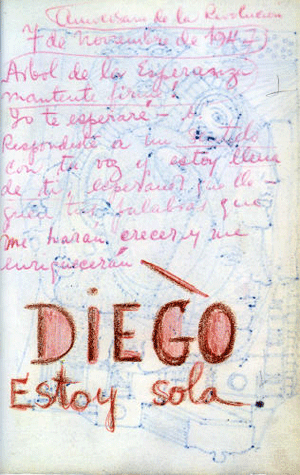 Aniversario de la Revolucion
7 de Noviembre de 1947
Arbol de la Esperanza
mantente firme!
Yo te esperaré –
Respondiste a un sentido
con tu voz y estoy llena
de ti, esperando que lle-
guen tus palabras que
me harán crecer y me
enriquecerán
DIEGO
Estoy sola.